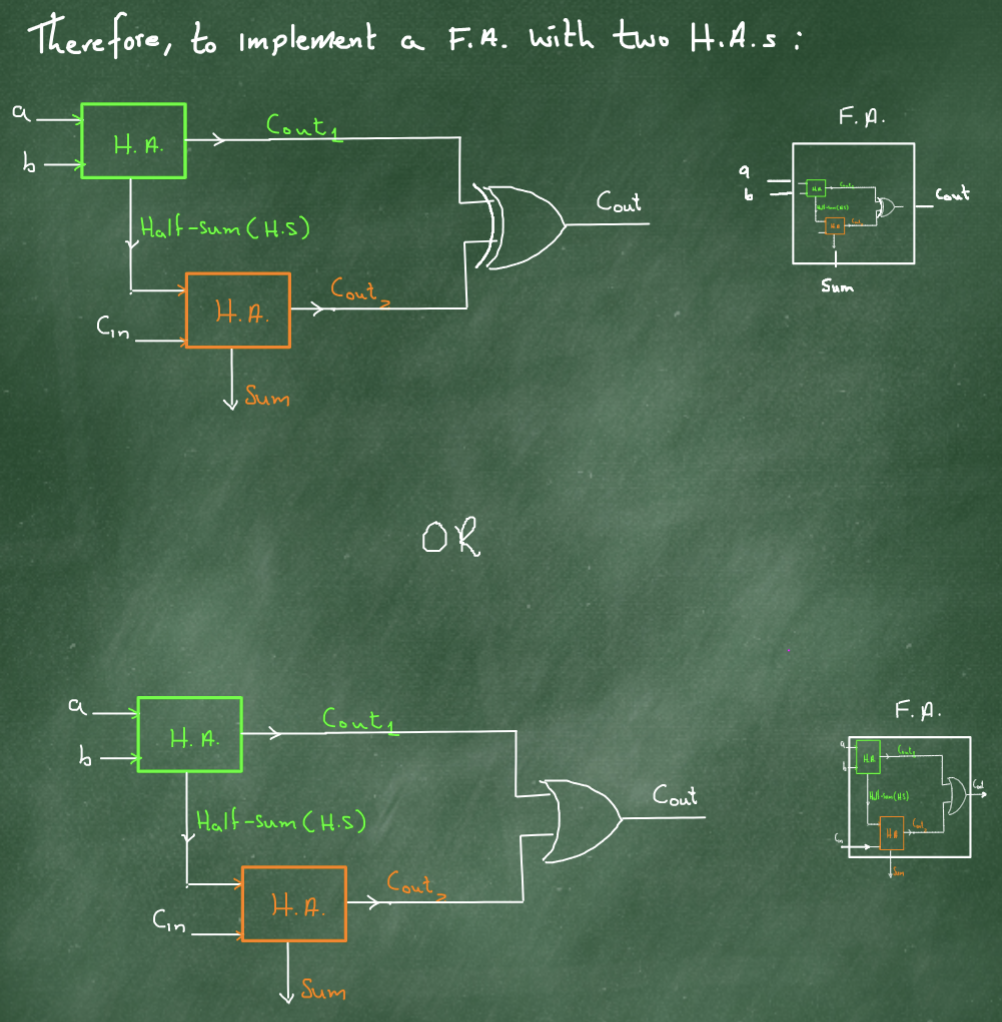 Therefore, to implement a F.A. with two H.A.s:
a
b
H.A.
Cout1
Half-sum (H.S)
Cin
H.A.
Cout2
Sum
Cout
F.A.
a
b
H.A
Cout1
Half-sum(H.S)
H.A
Cout
Sum
OR
a
b
H.A.
Cout1
Half-sum (H.S)
Cin
H.A.
Cout2
Sum
Cout
F.A.
a
b
H.A
Cout1
Half-sum(H.S)
Cin
H.A
Cout2
Sum
Cout